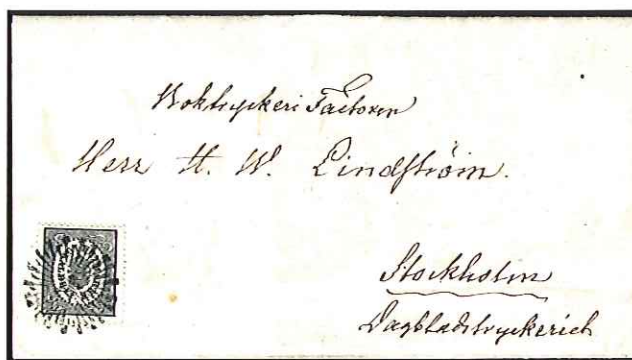 Boktryckeri Factoren
Herr H. W. Lindström.
Stockholm
Dagbladstryckeriet